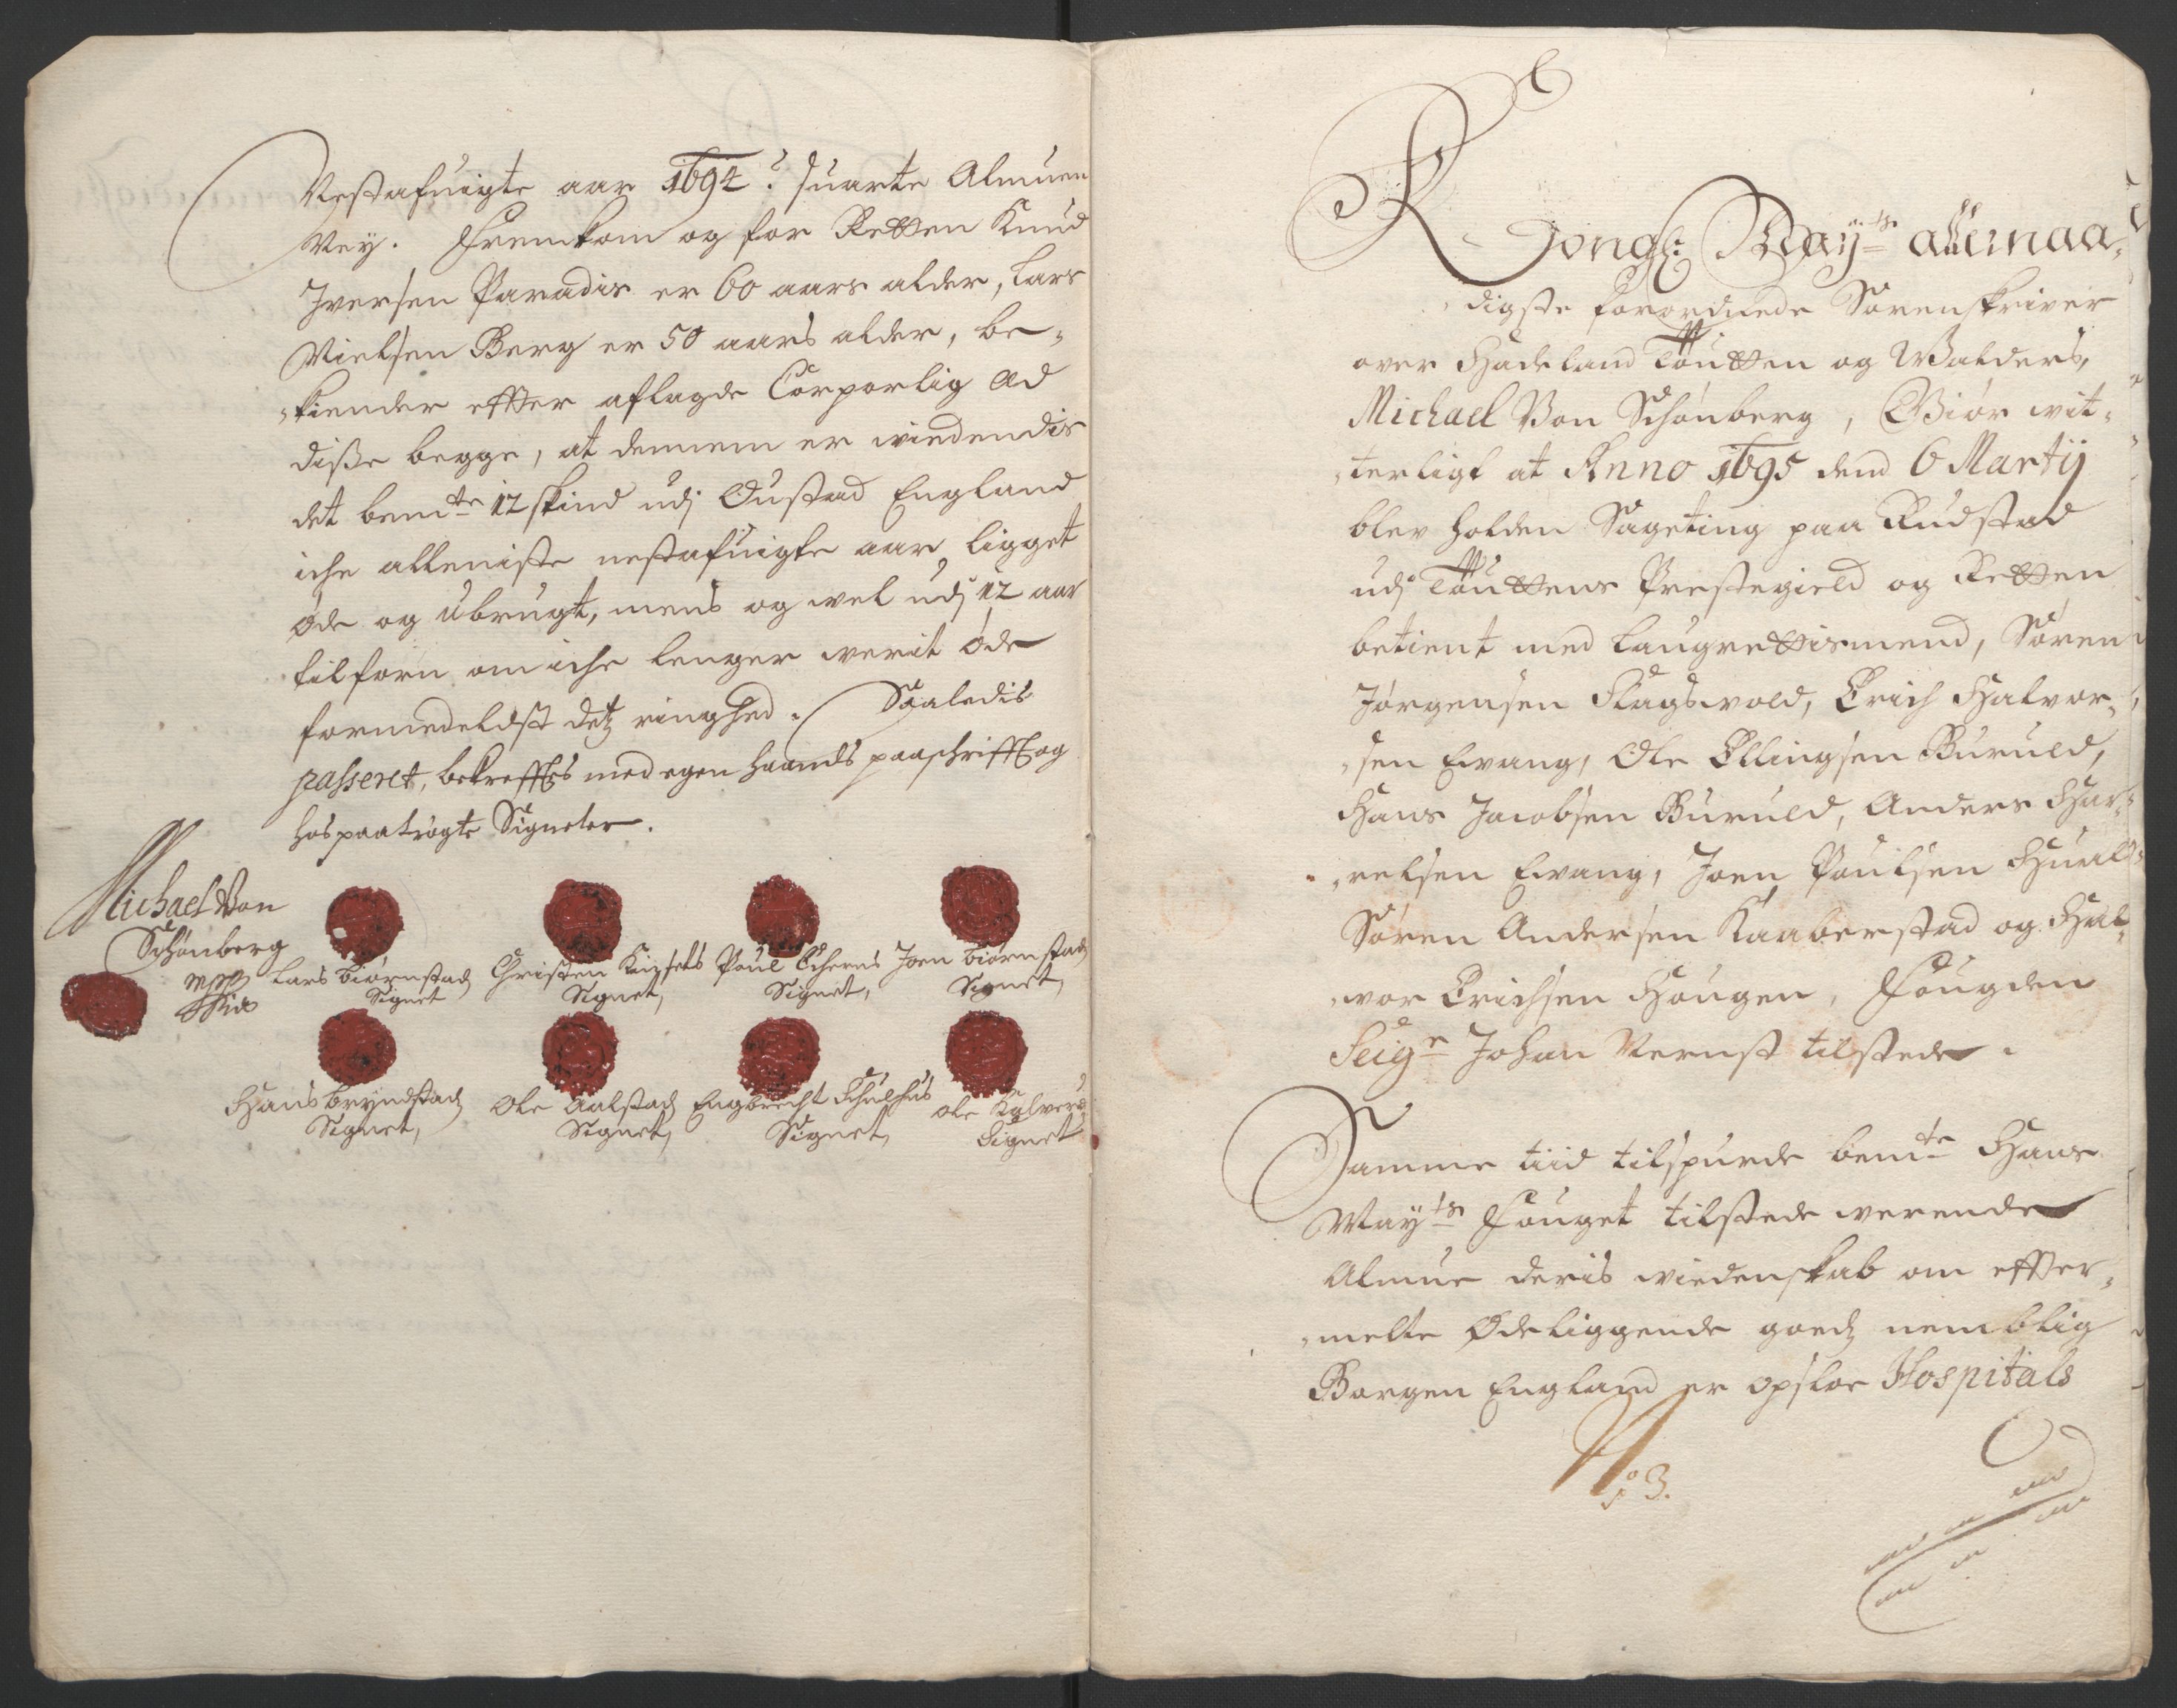 Nestafuigte aar 1694? suarte Almuen
Ney. Fremkom og for Retten Knud
Iversen Paradis er 60 aars alder, Lars
Nielsen Berg er 50 aars alder, be-
kiender effter aflagde Corporlig Æd
disse begge, at dennem er wiedendis
det bemte 12 skind udj Oustad England
iche alleniste nestafuigte aar ligget
øde og ubrugt, mens og wel udj 12 aar
tilforn om iche lenger werit øde
formedelst detz ringhed. Saaledis
passeret, bekrefftes med egen haands paaschrifft og
hos paatrögte Signeter.
Michael Von
Schönberg
mpp
Lars Biørnstadz
Signet
Christen
Signet,
Poul
Signet,
Joen Biørnstadz
Signet,
Hans Bryndstadz
Signet,
Ole Aalstadz
Signet,
Engbrecht
Signet,
Ole Kalvers
Signet
Kongl: Mayts allernaa-
digste forordnede Sorenskriver
over Hadeland Toutten og Walders,
Michael Von Schönberg, Giør wit-
terligt at Anno 1695 dend 6 Martij
blev holden Sageting paa Rudstad
udj Touttens Prestegield og Retten
betient med Laugrettismend, Søren
Jørgensen Klagswold, Erich Halvor-
sen Ewang, Ole Ellingsen Buruld,
Hans Jacobsen Buruld, Anders Har-
relsen Ewang, Joen Poulsen
Søren Andersen Kaaberstad og Hal-
wor Erichsen Hougen, Fougden
Seigr Johan Vernst tilstede.
Samme tiid tilspurde bemte Hans
Mayts Fouget tilstede werende
Almue deris wiedenskab om effter-
melte Ødeliggende goedz nemblig
Borgen England er Opsloe Hospitals
No 3.